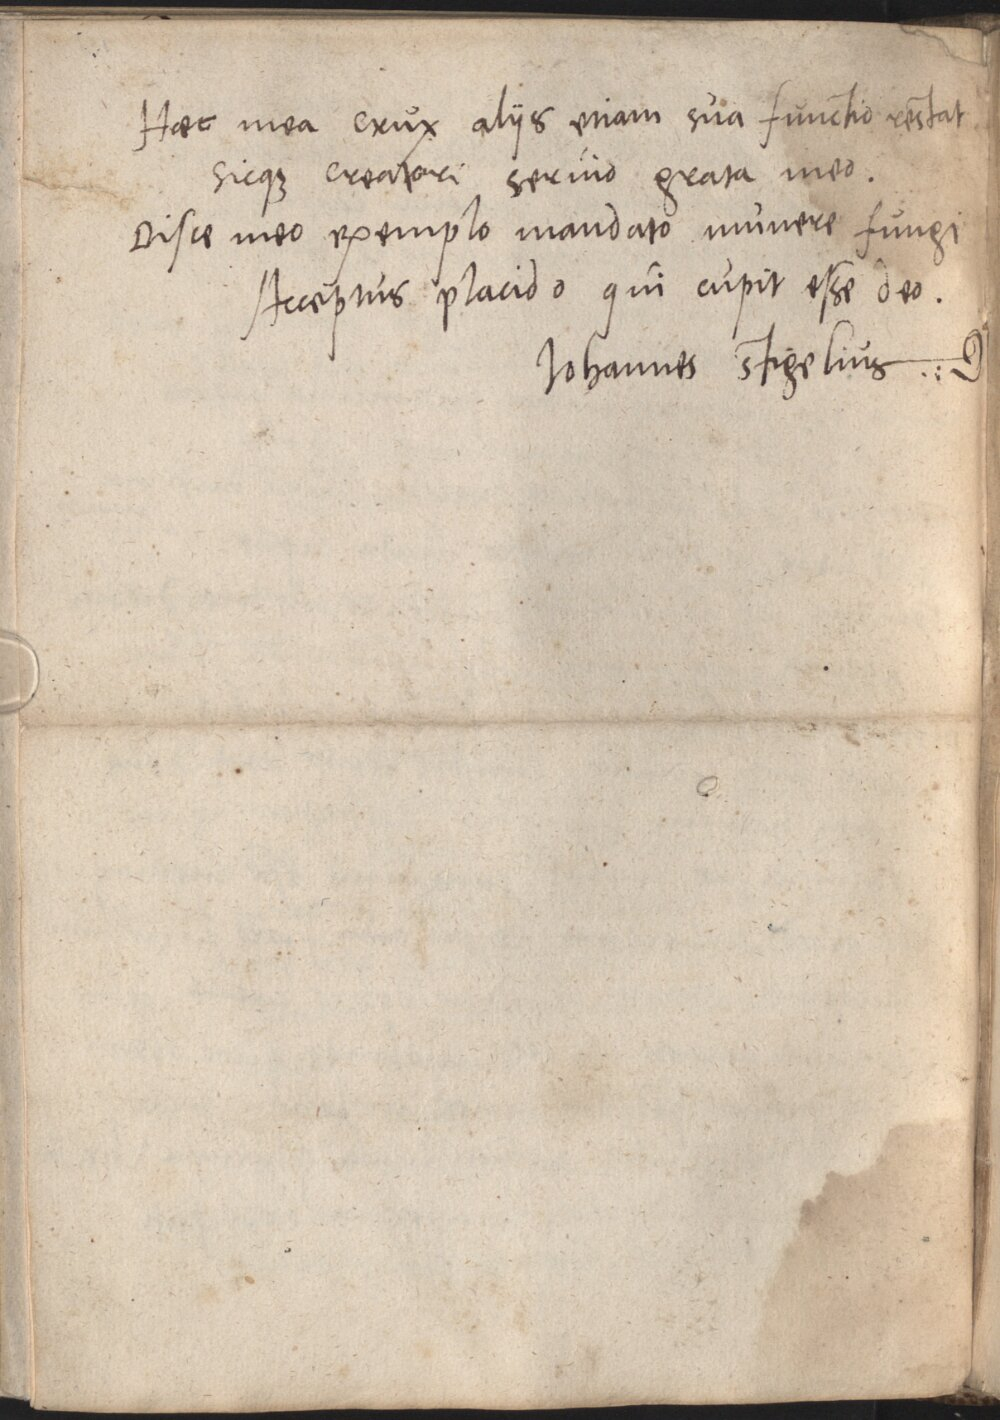 Haec mea crux alijs etiam sua functio restat
Sicqꝫ creatori seruio grata meo.
Disce meo exemplo mandato munere fungi
Acceptus placido qui cupit esse deo.
Iohannes Stigelius